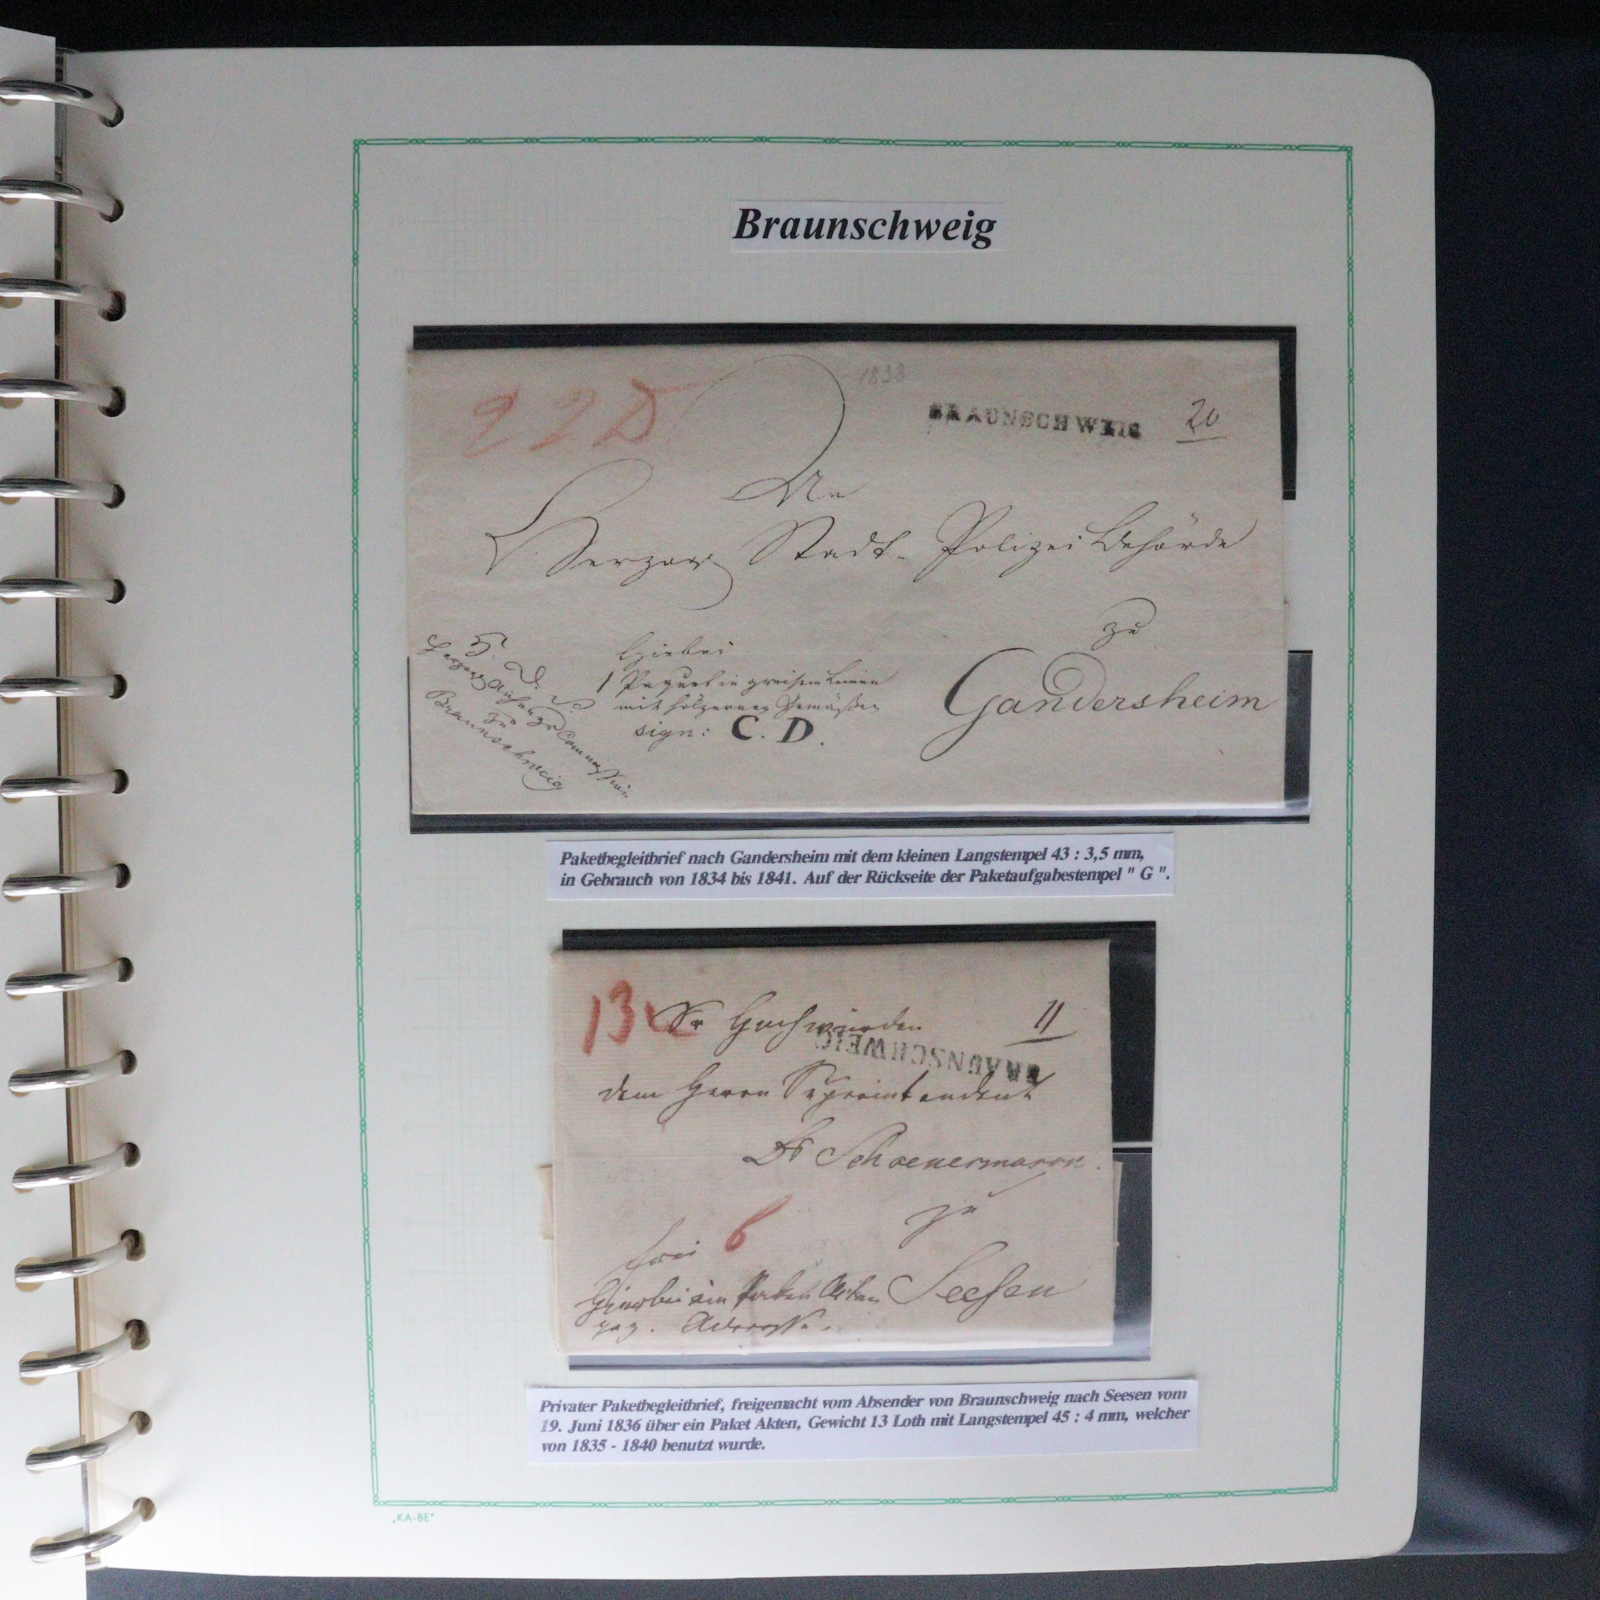 Braunschweig
22
1838
BRAUNSCHWEIG
20
An
Herzogl. Stadt-Polizei Behörde
zu
Gandersheim
H. D. S.
Herzogl.
zu
Braunschweig
Hierbei
1 Paquet in Leinen
mit hölzernen Gemäßen
sign: C. D.
Paketbegleitbrief nach Gandersheim mit dem kleinen Langstempel 43 : 3,5 mm,
in Gebrauch von 1834 bis 1841. Auf der Rückseite der Paketaufgabestempel " G ".
13
Sr Hochwürden
11
BRAUNSCHWEIG
dem Herrn Superintendent
Dr Schoenermann.
zu
frei 6
Hierbei ein Akten
Seesen
Adresse.
Privater Paketbegleitbrief, freigemacht vom Absender von Braunschweig nach Seesen vom
19. Juni 1836 über ein Paket Akten, Gewicht 13 Loth mit Langstempel 45 : 4 mm, welcher
von 1835 - 1840 benutzt wurde.
„KA-BE"